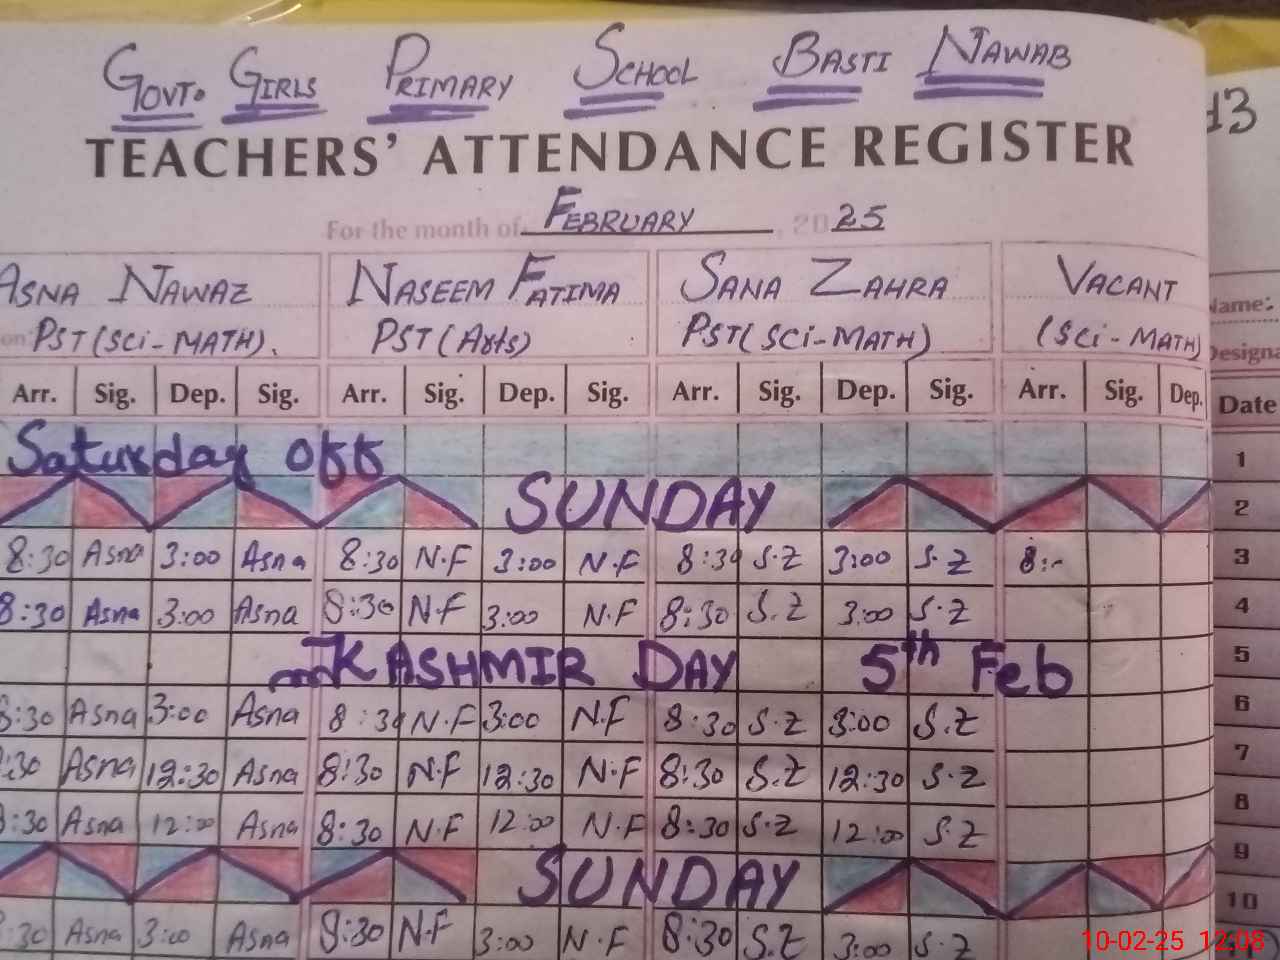 GOVT. GIRLS PRIMARY SCHOOL BASTI NAWAB
TEACHERS' ATTENDANCE REGISTER
For the month of FEBRUARY, 2025
ASNA NAWAZ NASEEM FATIMA SANA ZAHRA VACANT Name:
PST (SCi-MATH). PST (Arts) PST (SCi-MATH) (SCi-MATH)
Arr. Sig. Dep. Sig. Arr. Sig. Dep. Sig. Arr. Sig. Dep. Sig. Arr. Sig. Dep. Date
Saturday off 1
SUNDAY 2
8:30 Asna 3:00 Asna 8:30 N.F 3:00 N.F 8:30 S.Z 3:00 S.Z 3
8:30 Asna 3:00 Asna 8:30 N.F 3:00 N.F 8:30 S.Z 3:00 S.Z 4
KASHMIR DAY 5th Feb 5
8:30 Asna 3:00 Asna 8:30 N.F 3:00 N.F 8:30 S.Z 3:00 S.Z 6
:30 Asna 12:30 Asna 8:30 N.F 12:30 N.F 8:30 S.Z 12:30 S.Z 7
8:30 Asna 12:00 Asna 8:30 N.F 12:00 N.F 8:30 S.Z 12:00 S.Z 8
SUNDAY 9
:30 Asna 3:00 Asna 8:30 N.F 3:00 N.F 8:30 S.Z 3:00 S.Z 10
10-02-25 12:08